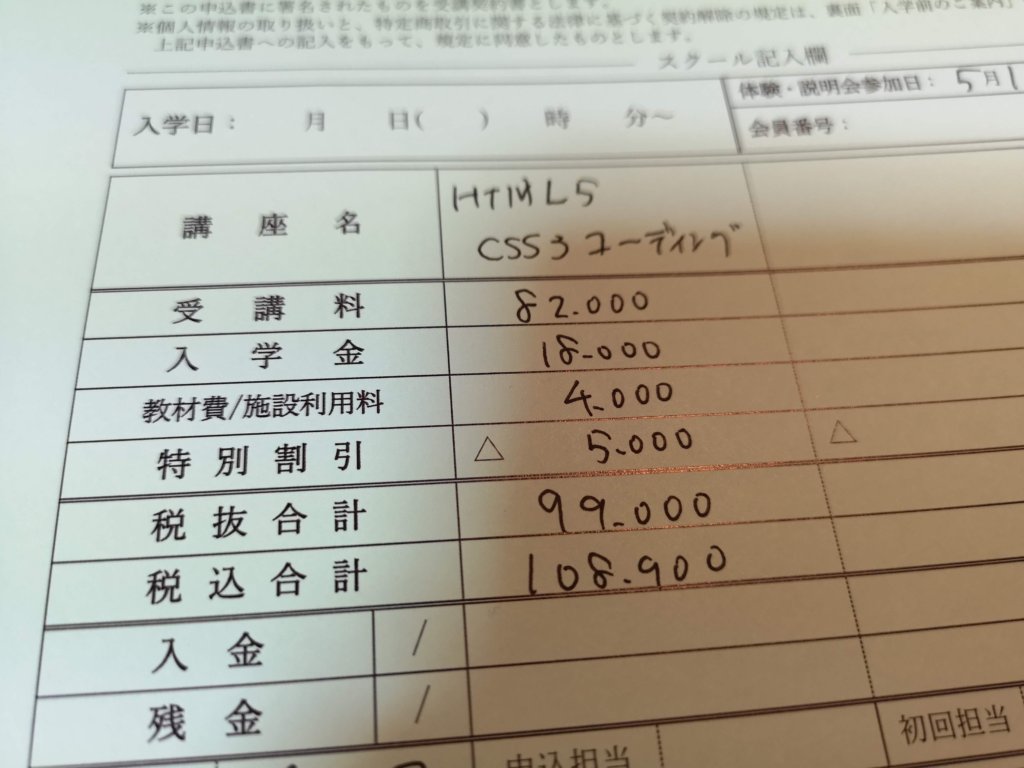 ※この申込書に署名されたものを受講契約書とします。
※個人情報の取り扱いと、特定商取引に関する法律に基づく契約解除の規定は、裏面「入学前のご案内」
上記申込書への記入をもって、規定に同意したものとします。
スクール記入欄
入学日： 月 日( ) 時 分～
体験・説明会参加日： 5月1
会員番号：
講座名 HTML5
CSS3 コーディング
受講料 82.000
入学金 18.000
教材費/施設利用料 4.000
特別割引 △ 5.000 △
税抜合計 99.000
税込合計 108.900
入金 /
残金 /
申込担当 初回担当